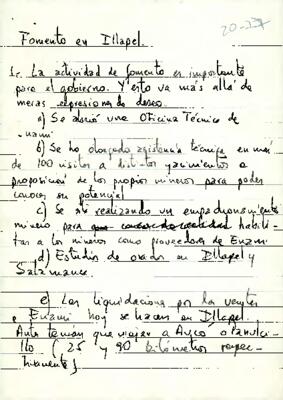 20-23
Fomento en Illapel.
1.- La actividad de fomento es importante
para el gobierno. Y esto va más allá de
meras expresiones de deseo.
a) Se abrió una Oficina Técnica de
Enami
b) Se ha otorgado asistencia técnica en más
de 100 visitas a distintos yacimientos a
proposición de los propios mineros para poder
conocer su potencial
c) Se está realizando un empadronamiento
minero para habili-
tar a los mineros como proveedores de Enami
d) Estudios de osados en Illapel y
Salamanca.
e) Las liquidaciones por las ventas
a Enami hoy se hacen en Illapel.
Antes tenían que viajar a
llo (25 y 90 kilómetros respec-
tivamente)